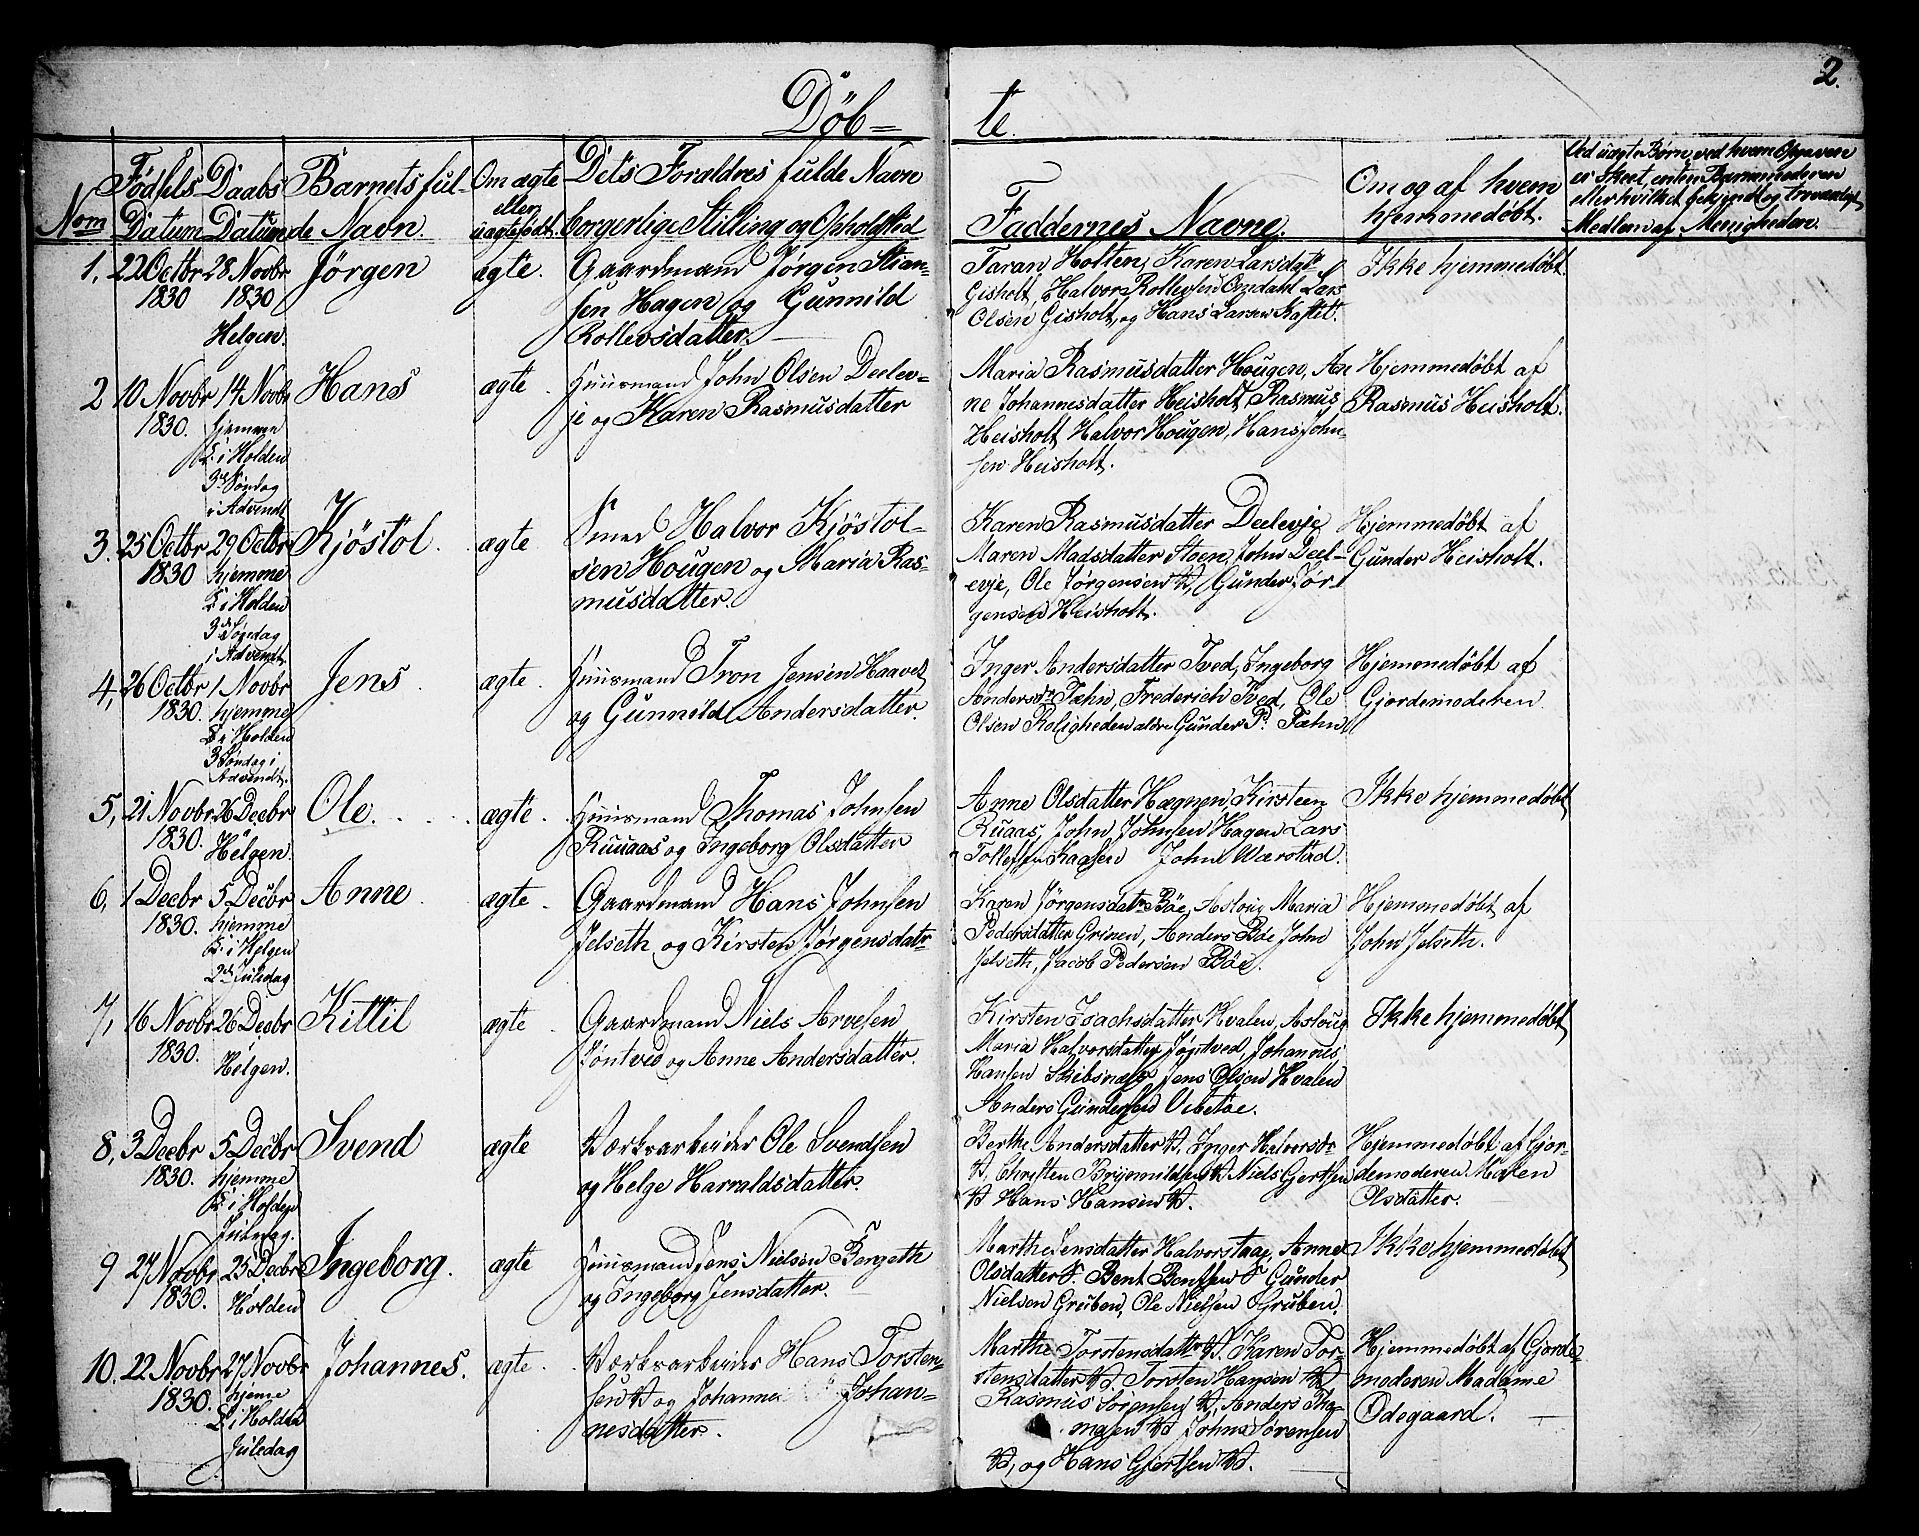 2.
Döb= te.
Nom
Födsels Datum
Daabs Datum
Barnets fulde Navn
Om ægte eller uægtefødt.
Dets Forældres fulde Navn
borgerlige Stilling og Opholdsted
Faddernes Navne.
Om og af hvem
hjemmedøbt.
Ved uægte Børn, ved hvem Opgaven
er skeet, enten Barnemoderen
eller hvilket bekjendt og troværdigt
Medlem af Menigheden.
1, 22 Octbr 1830
28 Novbr 1830 Helgen.
Jörgen
ægte.
Gaardmand Jørgen Stian-
sen Hagen og Gunnild
Rollevsdatter.
Taran Holten, Karen Larsdatr
Gisholt, Halvor Rollevsen Omdahl Lars
Olsen Gisholt, og Hans Larsen Kastet.
Ikke hjemmedøbt
2 10 Novbr 1830.
14 Novbr hjemme
i Holden
3d Söndag
i Advendt
Hans
ægte.
Huusmand John Olsen Deelev-
je og Karen Rasmusdatter
Maria Rasmusdatter Hougen, An
ne Johannesdatter Heisholt, Rasmus
Heisholt Halvor Hougen, Hans John-
sen Heisholt.
Hjemmedøbt af
Rasmus Heisholt.
3. 25 Octbr 1830
29 Octbr
hjemme
i Holden
3d Søndag
i Advendt
Kjöstol.
ægte
Smed Halvor Kjöstol-
sen Hougen og Maria Ras-
musdatter.
Karen Rasmusdatter Deelevje
Maren Madsdatter Stoen, John Deel-
evje, Ole Jørgensen V, Gunder Jør
gensen Heisholt.
Hjemmedøbt af
Gunder Heisholt.
4, 26 Octbr 1830.
1 Novbr
hjemme
i Holden
3 Søndag i
Advendt.
Jens.
ægte.
Huusmand Tron Jensen Haavet
og Gunnild Andersdatter.
Inger Andersdatter Tved, Ingeborg
Andersdr Fæhn, Frederich Tved, Ole
Olsen Roligheden ældre Gunder P. Fæhn
Hjemmedøbt af
Gjordemoderen
5, 21 Novbr 1830.
26 Decbr
Helgen.
Ole.
ægte.
Huusmand Thomas Johnsen
Ruugaas og Ingeborg Olsdatter
Anne Olsdatter Hægnen, Kirsteen
Rugaas, John Johnsen Hagen Lars
Tollefsen Kaasen John Wærstad.
Ikke hjemmedøbt
6, 1 Decbr 1830.
5 Decbr
hjemme
i Helgen
2d Juledag
Anne
ægte.
Gaardmand Hans Johnsen
Jelseth og Kirsten Jørgensdatr
Karen Jørgensdatr Böe, Asloug Maria
Pedersdatter Grinen, Anders Böe John
Jelseth, Jacob Pedersen Böe.
Hjemmedøbt af
John Jelseth.
7, 16 Novbr 1830.
26 Decbr
Helgen.
Kittil
ægte
Gaardmand Niels Arvesen
Jöntved og Anne Andersdatter.
Kirsten Isachsdatter Hvalen, Aslaug
Maria Halvorsdatter Jöntved, Johannes
Hansen Skibsnæss Jens Olsen Hvalen
Anders Gundersen Vibetoe.
Ikke hjemmedøbt
8, 3 Decbr 1830.
5 Decbr
hjemme
i Holden
Juledag.
Svend
ægte
Værksarbeider Ole Svendsen
og Helge Harraldsdatter.
Berthe Andersdatter V, Inger Halversdr
V, Christen Brynnildsen V Niels Gjertsen
V Hans Hansen V.
Hjemmedøbt af Gjor-
demoderen Maren
Olsdatter.
9 27 Novbr 1830.
25 Decbr
Holden
Ingeborg.
ægte
Huusmand Jens Nielsen Bergeth
og Ingeborg Jensdatter.
Marthe Jensdatter Halvorstaae, Anne
Olsdatter S. Bent Bentsen S Gunder
Nielsen Gruben, Ole Nielsen Gruben.
Ikke hjemmedøbt
10. 22 Novbr 1830.
27 Novbr
hjeme
i Holden
Juledag
Johannes.
ægte.
Værksarbeider Hans Torsten-
sen V og Johanne Johan-
nesdatter.
Marthe Torstensdattr V. Karen Tor-
stensdatter V. Torsten Hansen V
Rasmus Sörensen V, Anders Tho-
masen V John Sørensen
V, og Hans Gjertsen V.
Hjemmedøbt af Gjorde-
moderen Madame
Ödegaard.